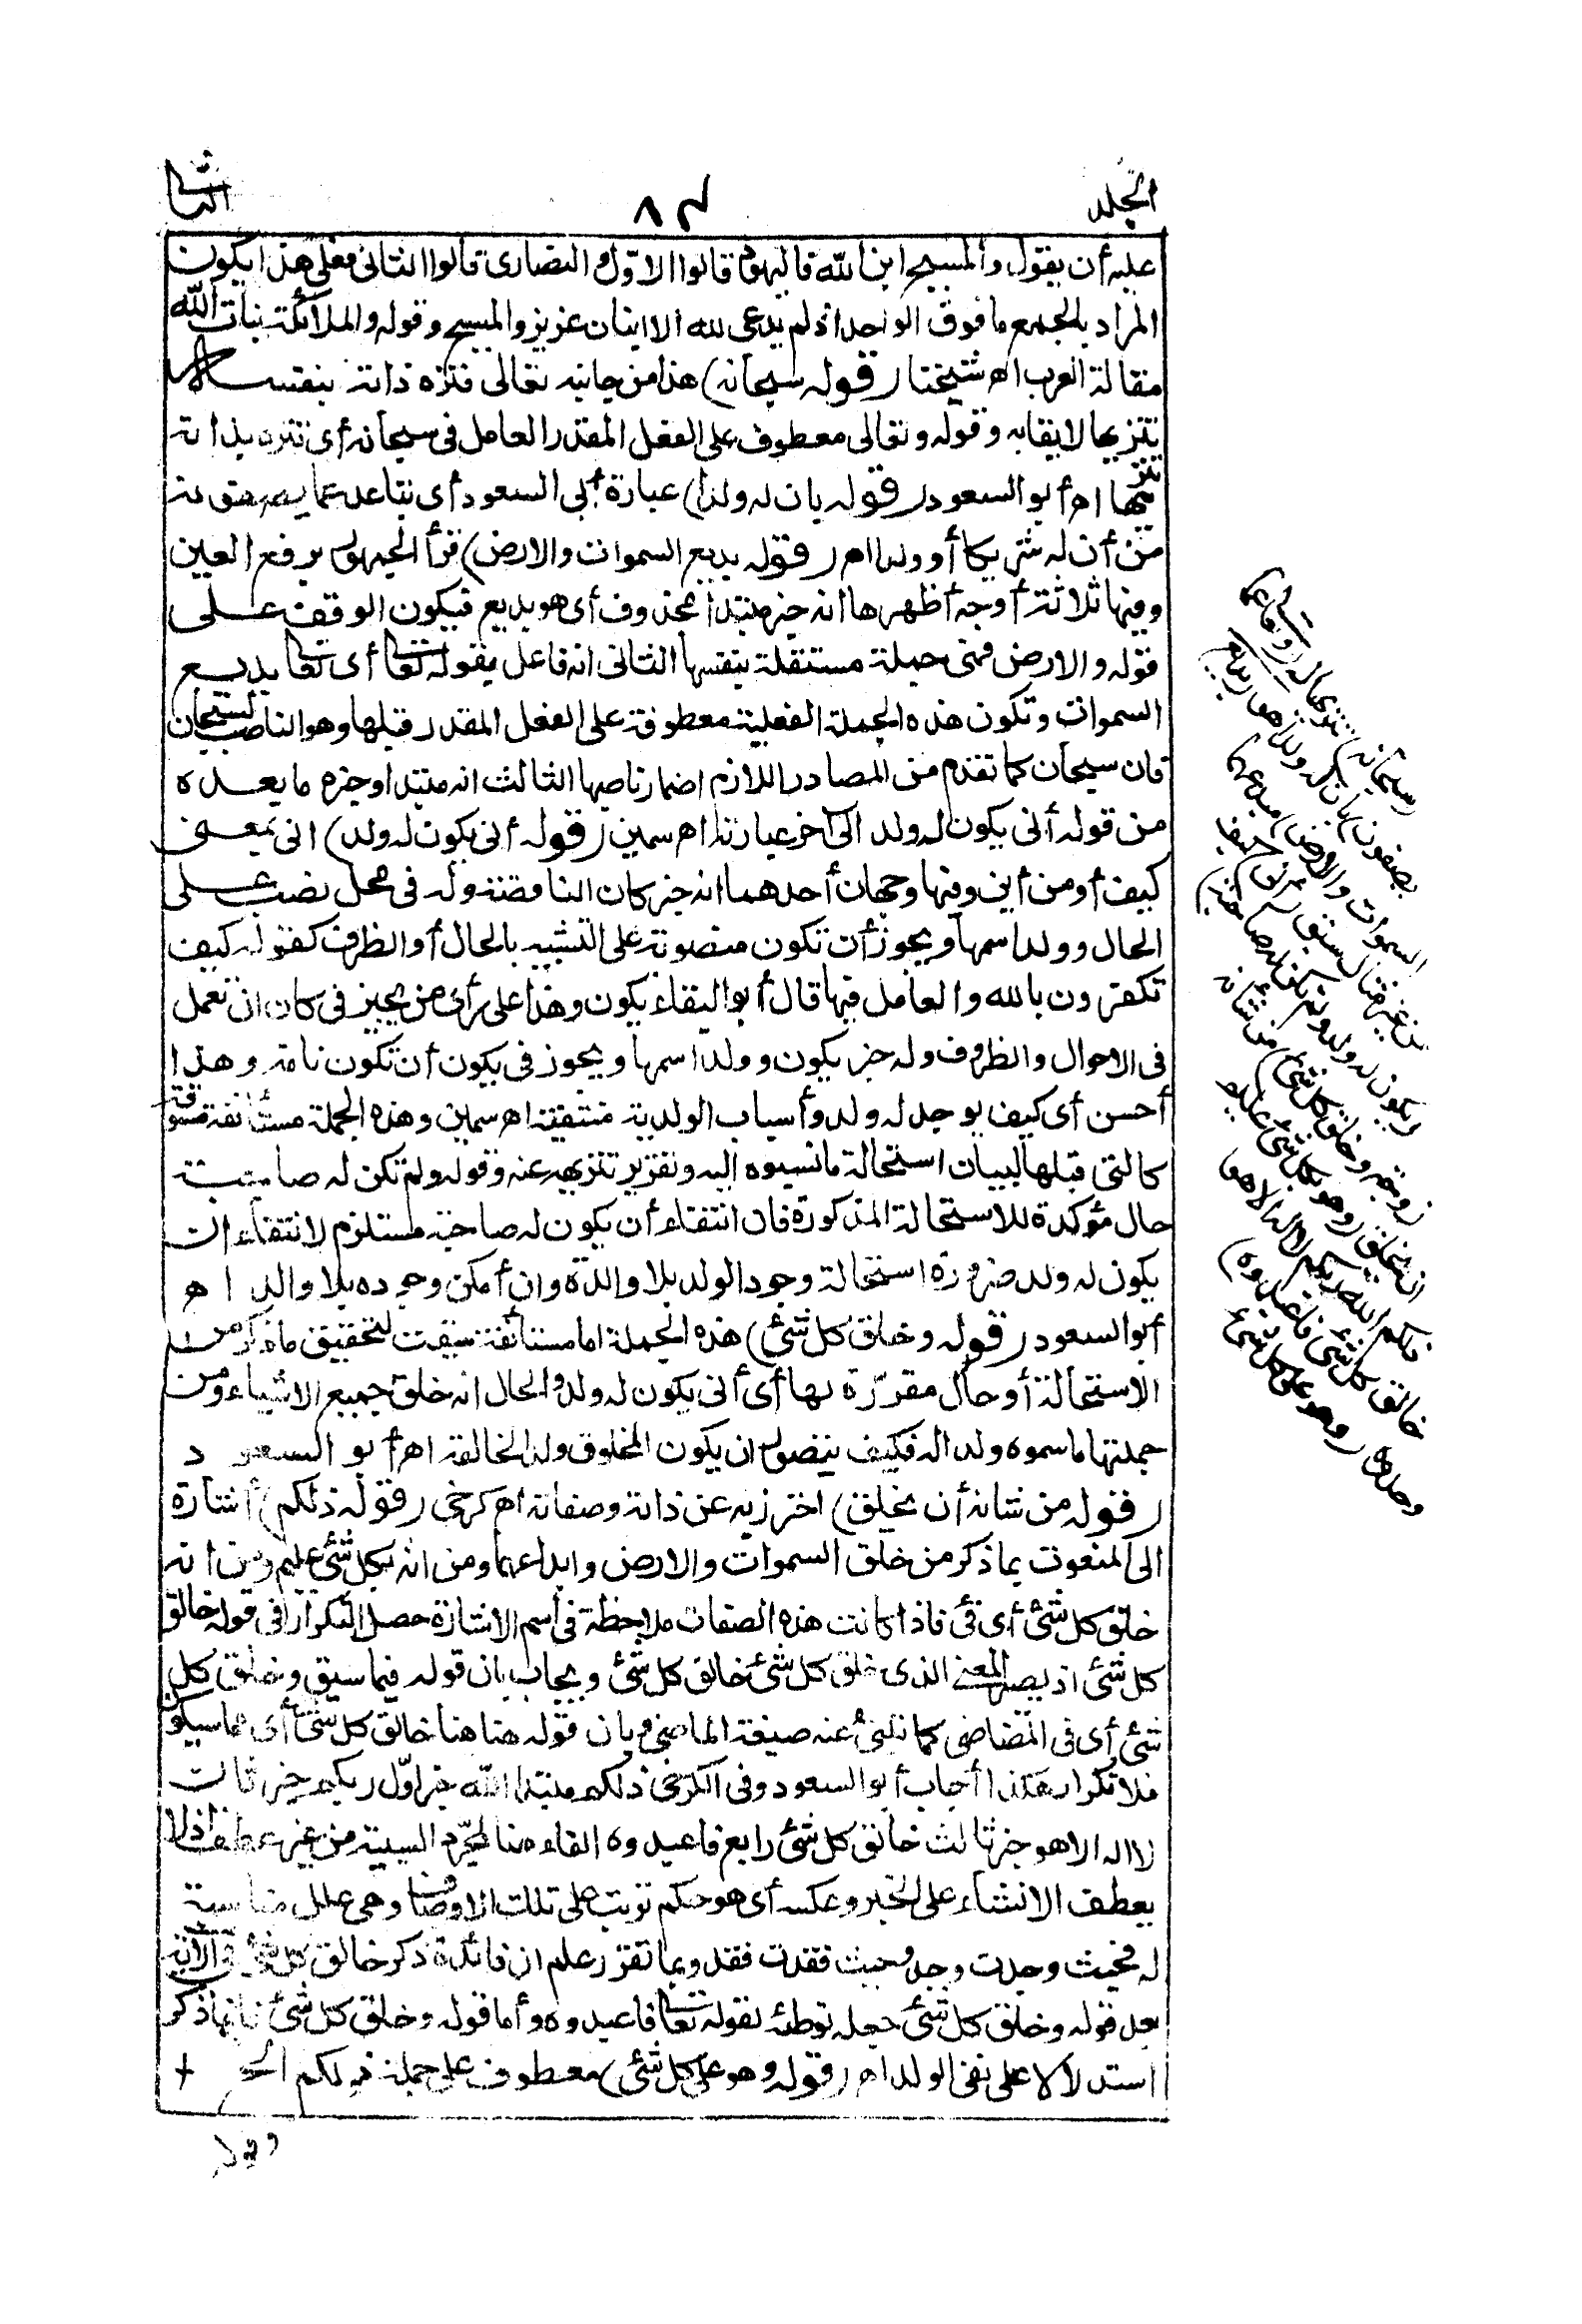 الجلد ٨٣ الثانى
عليه أن يقول والمسيح ابن الله فاليهود قالوا الاوّل والنصارى قالوا الثانى فعلى هذا يكون
المراد بالجمع ما فوق الواحد اذ لم يدعى لله الا ابنان عزيز والمسيح وقوله والملائكة بنات الله
مقالة العرب اهـ شيخنا (قوله سبحانه) هذا من جانبه تعالى فنزه ذاته بنفسه
تنزيها لايقا به وقوله وتعالى معطوف على الفعل المقدر العامل فى سبحانه أى تنزه بذاته
تنزيها اهـ أبو السعود (قوله بان له ولدا) عبارة أبى السعود أى تباعد عما يصفونه
من أن له شريكا أو ولدا اهـ (قوله بديع السموات والارض) قرأ الجمهور برفع العين
وفيها ثلاثة أوجه أظهرها انه خبر مبتدأ محذوف أى هو بديع فيكون الوقف على
قوله والارض فهى جملة مستقلة بنفسها الثانى انه فاعل بقوله تعالى أى تعالى بديع
السموات وتكون هذه الجملة الفعلية معطوفة على الفعل المقدر قبلها وهو الناصب لسبحان
فان سبحان كما تقدم من المصادر اللازم اضمار ناصبها الثالث انه مبتدا وخبره ما بعده
من قوله أنى يكون له ولد الى آخر عبارته اهـ سمين (قوله أنى يكون له ولد) انى بمعنى
كيف أو من أين وفيها وجهان أحدهما انه خبر كان الناقصة وله فى محل نصب على
الحال وولد اسمها ويجوز أن تكون منصوبة على التشبيه بالحال أو الظرف كقوله كيف
تكفرون بالله والعامل فيها قال أبو البقاء يكون وهذا على رأى من يجيز فى كان ان تعمل
فى الاحوال والظروف وله خبر يكون وولد اسمها ويجوز فى يكون أن تكون تامة وهذا
أحسن أى كيف يوجد له ولد وأسباب الولدية منتفية اهـ سمين وهذه الجملة مستأنفة مسوقة
كالتى قبلها لبيان استحالة ما نسبوه اليه وتقرير تنزيهه عنه وقوله ولم تكن له صاحبة
حال مؤكدة للاستحالة المذكورة فان انتفاء أن يكون له صاحبة مستلزم لانتفاء ان
يكون له ولد ضرورة استحالة وجود الولد بلا والدة وان أمكن وجوده بلا والد اهـ
أبو السعود (قوله وخلق كل شئ) هذه الجملة اما مستأنفة سيقت لتحقيق ما ذكر من
الاستحالة أو حال مقررة لها أى أنى يكون له ولد والحال انه خلق جميع الاشياء ومن
جملتها ما سموه ولدا له فكيف يتصور ان يكون المخلوق ولدا لخالقه اهـ أبو السعود
(قوله من شانه أن يخلق) احترز به عن ذاته وصفاته اهـ كرخى (قوله ذلكم) أشارة
الى المنعوت بما ذكر من خلق السموات والارض وابداعها ومن انه بكل شئ عليم ومن انه
خلق كل شئ أى فى فاذا كانت هذه الصفات ملاحظة فى اسم الاشارة حصل التكرار فى قوله خالق
كل شئ اذ يصير المعنى الذى خلق كل شئ خالق كل شئ ويجاب بان قوله فيما سبق وخلق كل
شئ أى فى الماضى كما تنبئ عنه صيغة الماضى وبان قوله هنا هنا خالق كل شئ أى مما سيكون
فلا تكرار هكذا أجاب أبو السعود وفى الكرخى ذلكم مبتدا الله خبر اوّل ربكم خبر ثان
لا اله الا هو خبر ثالث خالق كل شئ رابع فاعبدوه الفاء هنا لمجرّم السببية من غير عطف اذ لا
يعطف الانشاء على الخبر وعكسه أى هو حكم ترتب على تلك الاوصاف وهى علل مناسبة
له فحيث وجدت وجد وحيث فقدت فقد وبما تقرر علم ان فائدة ذكر خالق كل شئ فى الآية
بعد قوله وخلق كل شئ جعله توطئة لقوله تعالى فاعبدوه وأما قوله وخلق كل شئ فانها ذكر
استدلالا على نفى الولد اهـ (قوله وهو على كل شئ) معطوف على جملة ذلكم الخ
وقوله
(سبحانه) تنزيها له (وتعالى عما
يصفون) بان له ولدا هو (بديع
السموات والارض) مبدعهما
من غير مثال سبق (أنى) كيف
(يكون له ولد ولم تكن له صاحبة)
زوجة (وخلق كل شئ) من شأنه
ان يخلق (وهو بكل شئ عليم
ذلكم الله ربكم لا اله الا هو
خالق كل شئ فاعبدوه)
وحدوه (وهو على كل شئ